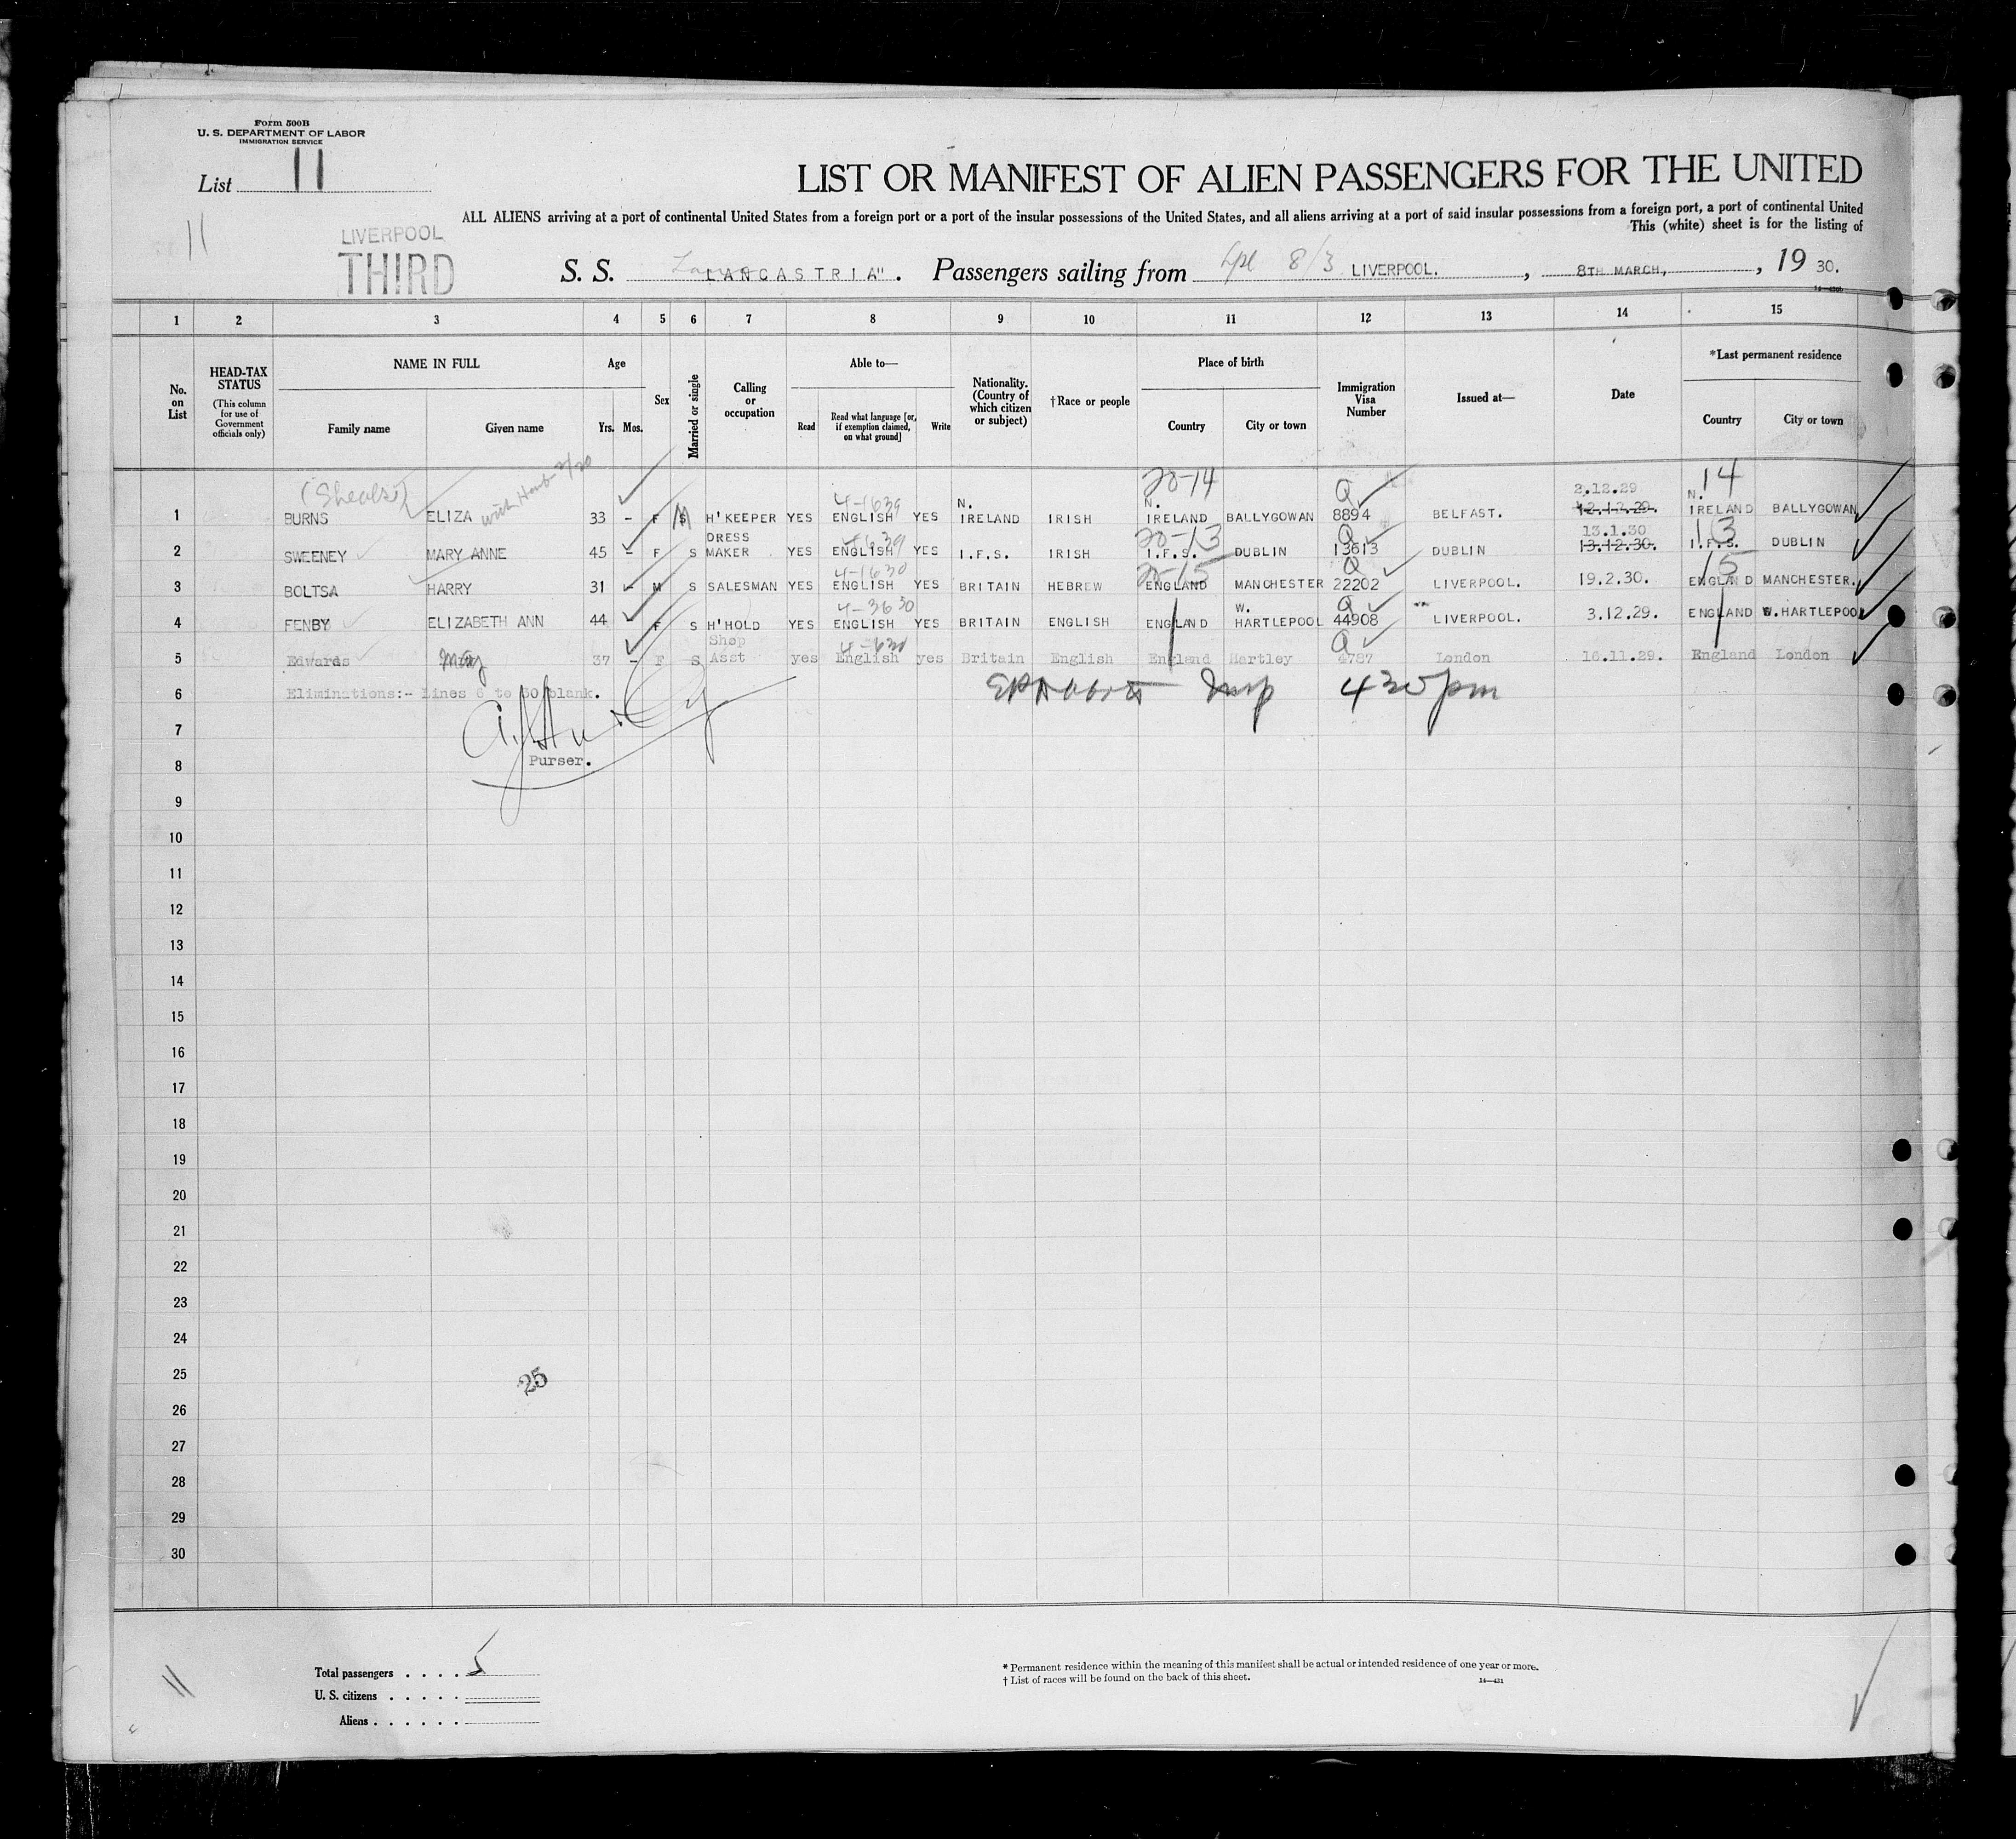 Form 500B
U. S. DEPARTMENT OF LABOR
IMMIGRATION SERVICE
List 11
11
LIVERPOOL
THIRD
LIST OR MANIFEST OF ALIEN PASSENGERS FOR THE UNITED
ALL ALIENS arriving at a port of continental United States from a foreign port or a port of the insular possessions of the United States, and all aliens arriving at a port of said insular possessions from a foreign port, a port of continental United
This (white) sheet is for the listing of
S. S. LANCASTRIA". Passengers sailing from Lpl 8/3 LIVERPOOL. , 8TH MARCH, , 19 30.
1 2 3 4 5 6 7 8 9 10 11 12 13 14 15
No. on List HEAD-TAX STATUS (This column for use of Government officials only) NAME IN FULL Family name Given name Age Yrs. Mos. Sex Married or single Calling or occupation Able to— Read Read what language [or, if exemption claimed, on what ground] Write Nationality. (Country of which citizen or subject) †Race or people Place of birth Country City or town Immigration Visa Number Issued at— Date *Last permanent residence Country City or town
20-14 Q 14
4-1639 2.12.29
1 BURNS ELIZA 33 - F S M H'KEEPER YES ENGLISH YES N. IRELAND IRISH N. IRELAND BALLYGOWAN 8894 BELFAST. 12.12.29. N. IRELAND BALLYGOWAN
20-13 Q 13.1.30 13
2 SWEENEY MARY ANNE 45 - F S DRESS MAKER YES ENGLISH YES I.F.S. IRISH I.F.S. DUBLIN 13613 DUBLIN 13.12.30. I.F.S. DUBLIN
4-1630 20-15 Q 15
3 BOLTSA HARRY 31 - M S SALESMAN YES ENGLISH YES BRITAIN HEBREW ENGLAND MANCHESTER 22202 LIVERPOOL. 19.2.30. ENGLAND MANCHESTER.
4-3630 Q
4 FENBY ELIZABETH ANN 44 F S H'HOLD YES ENGLISH YES BRITAIN ENGLISH ENGLAND W. HARTLEPOOL 44908 LIVERPOOL. 3.12.29. ENGLAND W.HARTLEPOOL
Q
5 Edwards May 37 - F S Shop Asst yes English yes Britain English England Hartley 4787 London 16.11.29. England London
6 Eliminations:- Lines 6 to 30 blank. Insp 4 30 pm
7
Purser.
8
9
10
11
12
13
14
15
16
17
18
19
20
21
22
23
24
25
25
26
27
28
29
30
Total passengers . . . . 5
U. S. citizens . . . . .
Aliens . . . . . .
* Permanent residence within the meaning of this manifest shall be actual or intended residence of one year or more.
† List of races will be found on the back of this sheet.
14—431
11